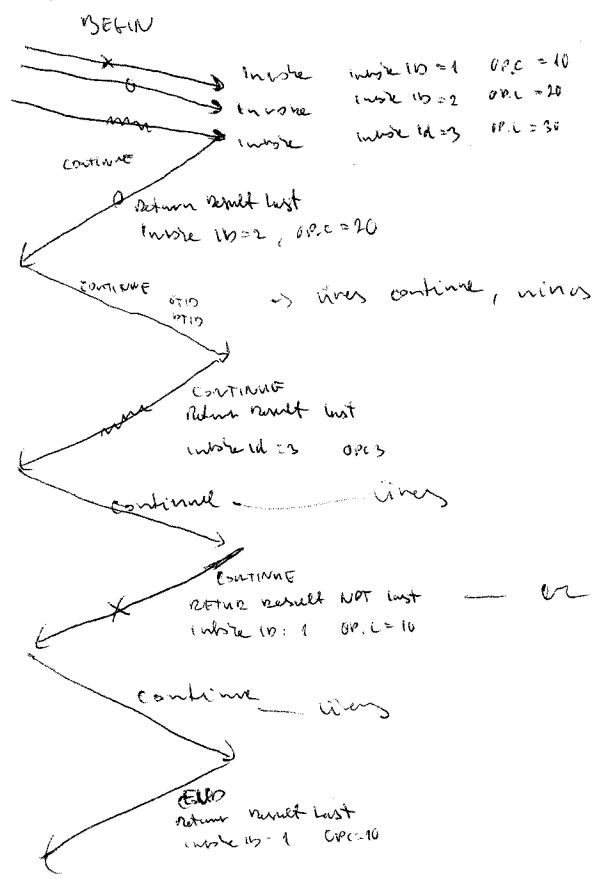 BEGIN
Invoke invoke ID = 1 OP.C = 10
Invoke invoke ID = 2 OP.C = 20
Invoke invoke Id = 3 OP.C = 30
CONTINUE
Return Result Last
Invoke ID = 2, OP.C = 20
CONTINUE → üres continue, nincs
OTID
DTID
CONTINUE
Return Result last
invoke Id = 3 OPC 3
Continue üres
CONTINUE
RETUR Result NOT last
invoke ID: 1 OP.C = 10
Continue üres
END
Return Result Last
invoke ID - 1 OPC = 10